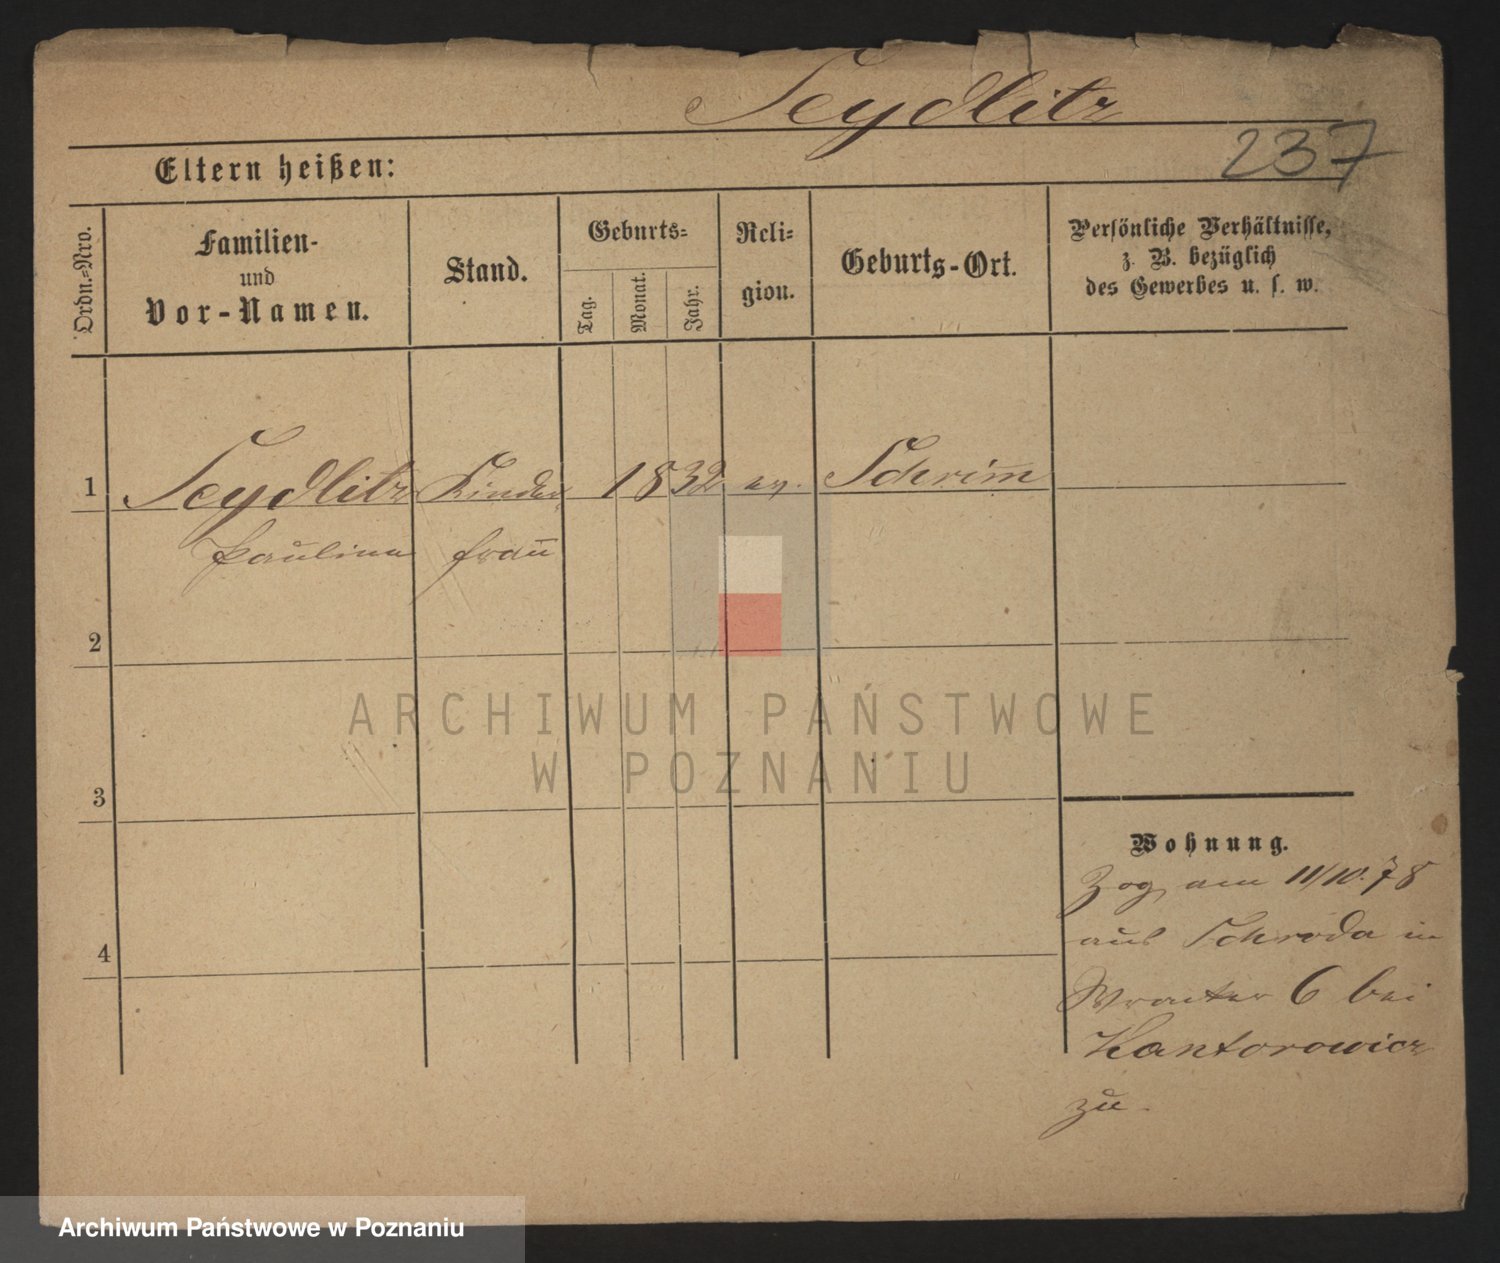 Seydlitz
237
Eltern heißen:
Ordn.-Nro.
Familien-
und
Vor-Namen.
Stand.
Geburts-
Tag.
Monat.
Jahr.
Reli-
gion.
Geburts-Ort.
Persönliche Verhältnisse,
z. B. bezüglich
des Gewerbes u. s. w.
1 Seydlitz Kinder 1832 ev. Schrimm
Pauline frau
2
3
4
Wohnung.
Zog am 11/10.78
aus Schroda in
6 bei
Kantorowicz
zu.
ARCHIWUM PAŃSTWOWE
W POZNANIU
Archiwum Państwowe w Poznaniu